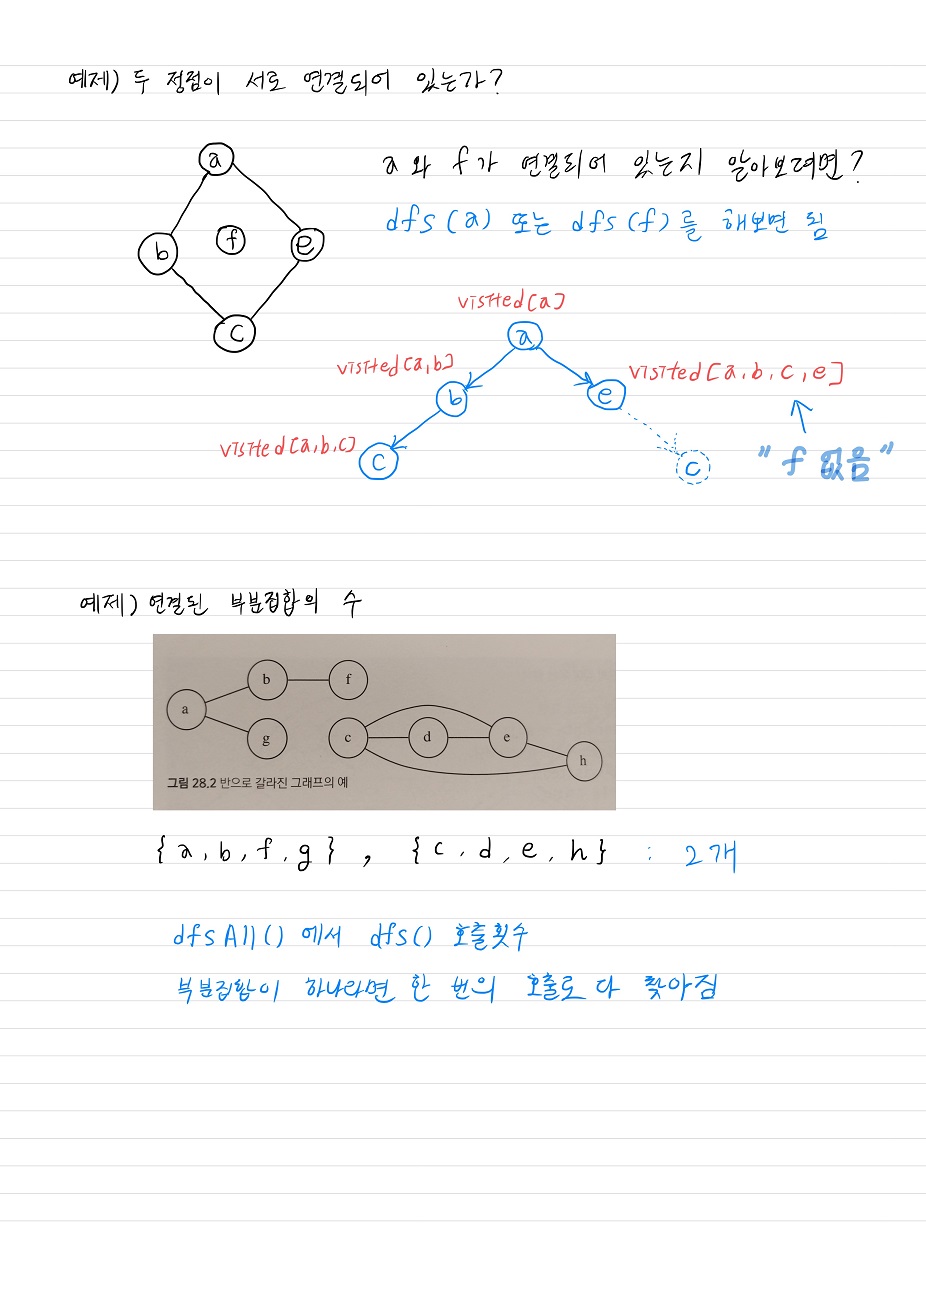 예제) 두 정점이 서로 연결되어 있는가?
a
b
f
e
c
a와 f가 연결되어 있는지 알아보려면?
dfs(a) 또는 dfs(f)를 해보면 됨
visited[a]
a
visited[a,b]
b
e
visited[a,b,c,e]
visited[a,b,c]
c
c
"f 없음"
예제) 연결된 부분집합의 수
b
f
a
g
c
d
e
h
그림 28.2 반으로 갈라진 그래프의 예
{a,b,f,g}, {c,d,e,h} : 2개
dfsAll()에서 dfs() 호출횟수
부분집합이 하나라면 한 번의 호출로 다 찾아짐